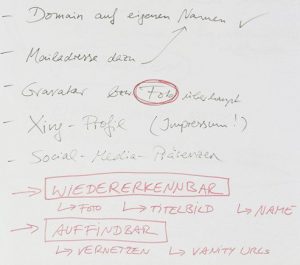 – Domain auf eigenen Namen ✓
– Mailadresse dazu
– Gravatar bzw. Foto überhaupt
– Xing-Profil (Impressum!)
– Social-Media-Präsenzen
→ WIEDERERKENNBAR
↳ FOTO ↳ TITELBILD ↳ NAME
→ AUFFINDBAR
↳ VERNETZEN ↳ VANITY URLS